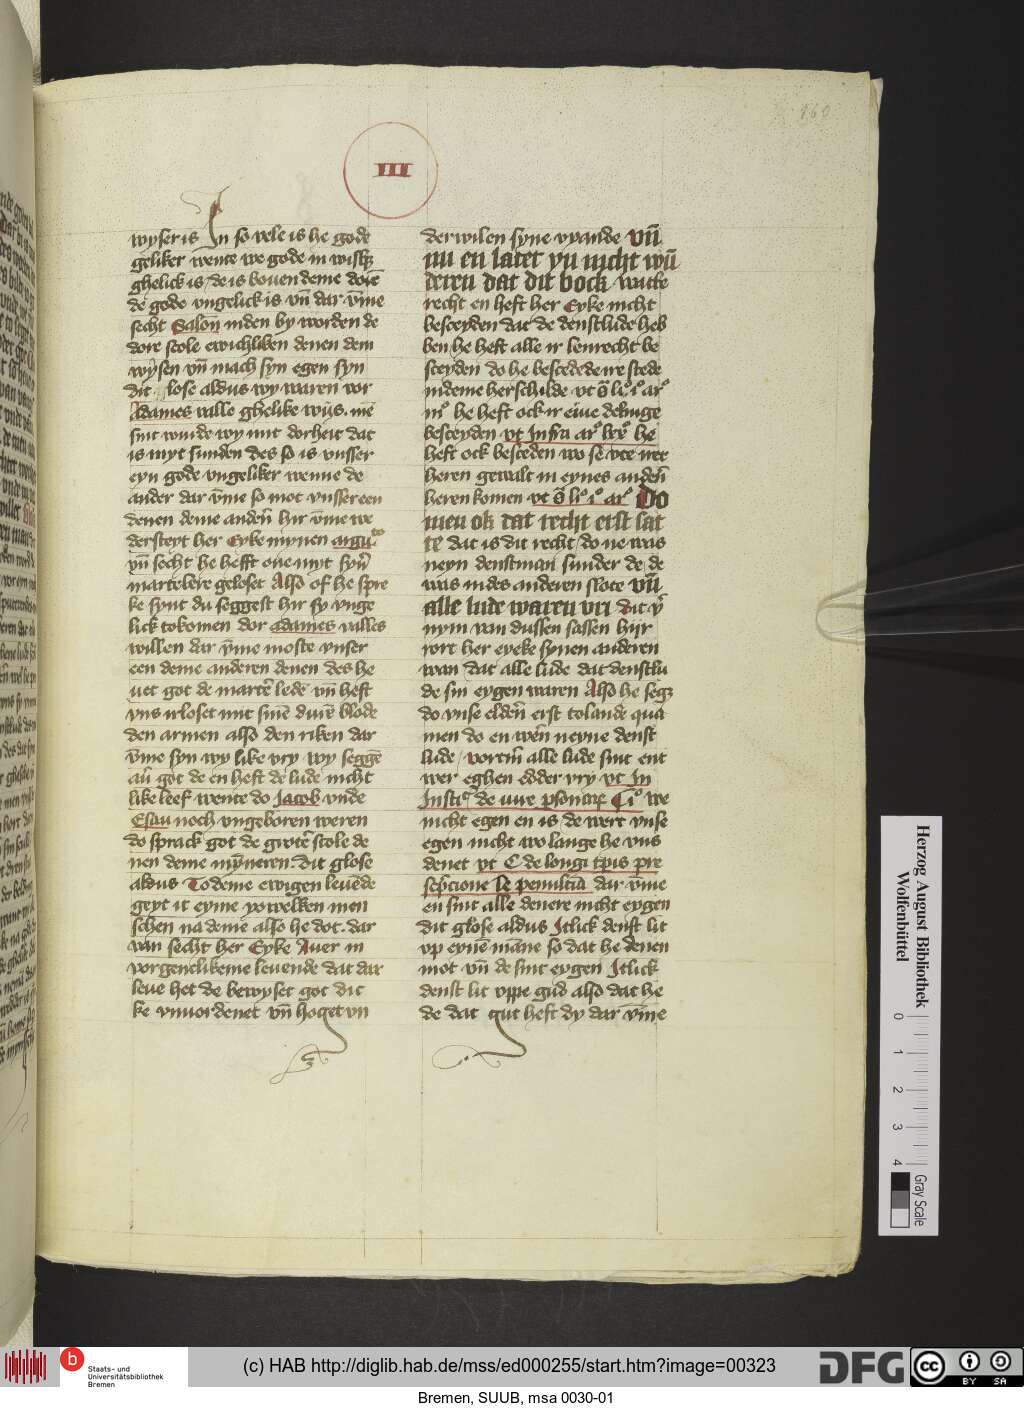 160
III
wyser is In so vele is he gode
geliker wente we gode in wish
ghelick is / de is bouen deme
de gode vngelick is vn̄ dar v̄me
secht Salon inden by worden de
dore scole ewichliken denen dem
wysen vn̄ mach syn egen syn
dit lose aldus wy waren vor
Adames valle ghelike wys. me
sint wurde wy mit dorheit dat
is myt sunden des so is vnsser
eyn gode vngeliker wenne de
ander dar v̄me so mot vnsser een
denen deme anderen hir v̄me we
dersteyt her Eyke mynen argu
vn̄ secht he hefft one myt syn
martelere geloset Also of he spre
ke synt du seggest hir sy vnge
lick tokomen dor adames valles
willen dar v̄me moste vnser
een deme anderen denen des he
uet got de marter ledē vn̄ heft
vns irloset mit sinē durē blode
den armen also den riken dar
v̄me syn wy like vry wy seggē
got de en heft de lude nicht
like leef wente do Jacob vnde
Esau noch vngeboren weren
do sprack got de grote scole de
nen deme mynneren. dit glose
aldus To deme ewigen leuēde
geyt it eyme yowelken men
schen na deme also he dot. dar
van secht her Eyke Auer in
vorgenclikeme leuende dat dar
leue het de bewyset got dit
ke vnuordenet vn̄ hoget vn
derwilen syne vyande vn̄
nu en latet yu nicht wū
deren dat dit bock wacke
recht en heft her Eyke nicht
besceyden dat de denstlude heb
ben he heft alle ir lenrecht be
sceyden do he bescededenre stede
indeme herschilde
he heft ock ir eine delinge
besceyden vt Infra ar he
heft ock besceden wo se vte irer
heren gewalt in eynes anderen
heren komen Do
men ok dat recht erst sat
te dat is dit recht / do ne was
neyn denstman sunder de de
was indes anderen stote vn̄
alle lude waren vri dit
nym van dussen sassen hyr
vort her eyeke synen anderen
wan dat alle lude dat denstlu
de sin eygen waren Also he segz
do vnse elderen erst to lande qua
men do en wern neyne denst
lude / vorem alle lude sint ent
wer eghen edder vry vt In
Insti de iure we
nicht egen en is de wert vnse
egen nicht wo lange he vns
denet vt C de longi tpis pre
scripcione le penultia dar v̄me
en sint alle denere nicht eygen
dit glose aldus Jtlick denst lit
vp eynē māne so dat he denen
mot vn̄ de sint eygen Jtlick
denst lit vppe gud also dat he
de dat gut heft dy dar v̄me
Herzog August Bibliothek
Wolfenbüttel
0 1 2 3 4
Gray Scale
b Staats- und
Universitätsbibliothek
Bremen
(c) HAB http://diglib.hab.de/mss/ed000255/start.htm?image=00323
DFG
cc BY SA
Bremen, SUUB, msa 0030-01